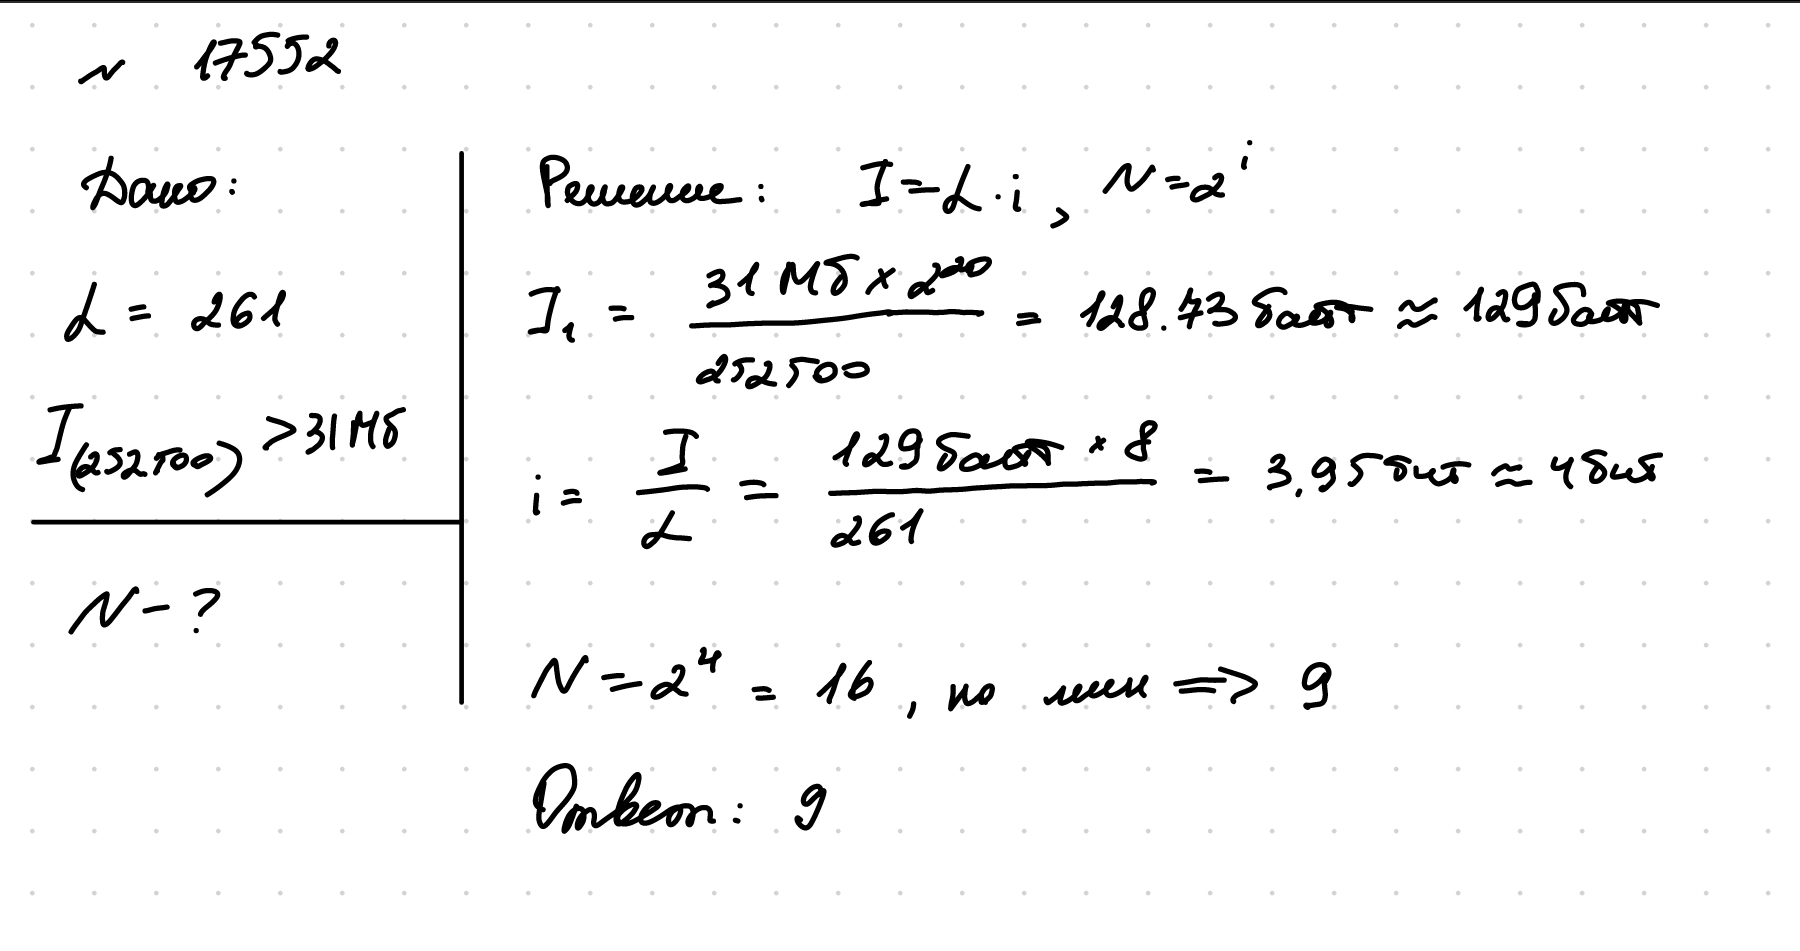 ~ 17552
Дано:
L = 261
I(252500) > 31 Мб
N - ?
Решение: I = L · i, N = 2^i
I₁ = 31 Мб × 2^20 / 252500 = 128.73 байт ≈ 129 байт
i = I / L = 129 байт × 8 / 261 = 3,95 бит ≈ 4 бит
N = 2^4 = 16, но мин => 9
Ответ: 9